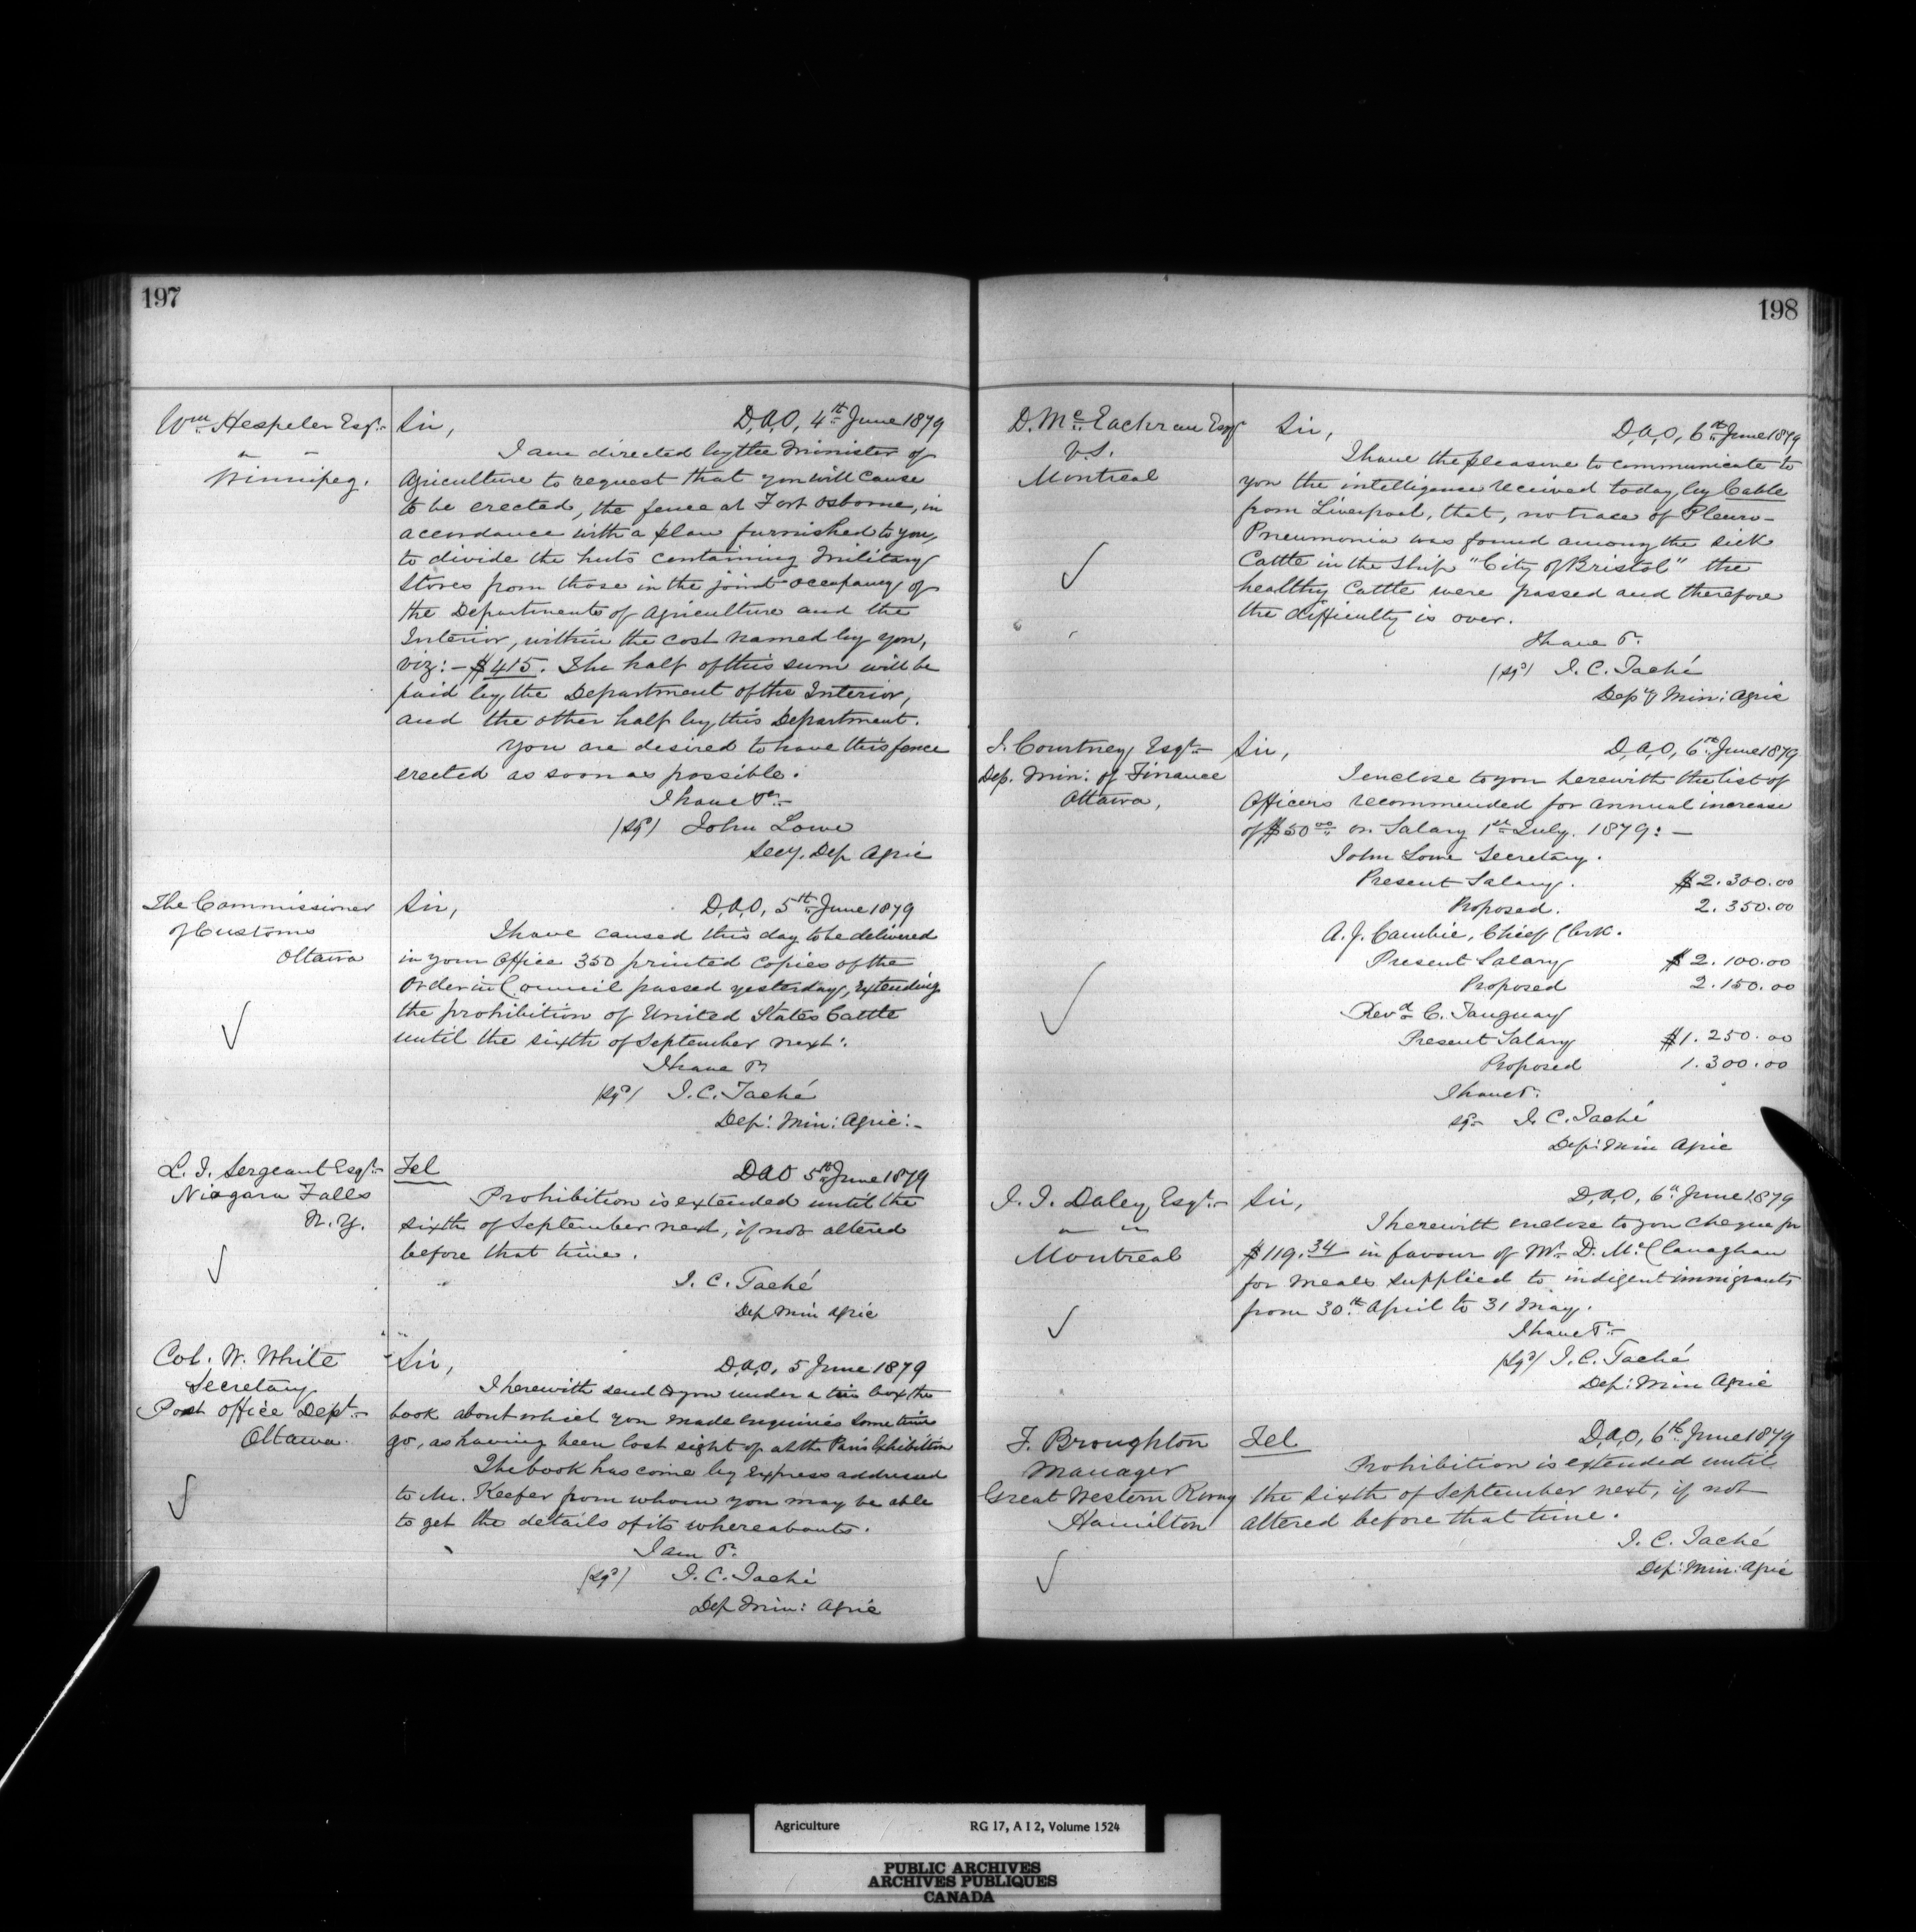 197
Wm. Hespeler Esqr.
" "
Winnipeg.
Sir,
D.A.O, 4th June 1879
I am directed by the Minister of
Agriculture to request that you will cause
to be erected, the fence at Fort Osborne, in
accordance with a plan furnished to you,
to divide the huts containing Military
Stores from those in the joint occupancy of
the Departments of Agriculture and the
Interior, within the cost named by you,
viz:- $415. The half of this sum will be
paid by the Department of the Interior,
and the other half by this Department.
You are desired to have this fence
erected as soon as possible.
I have &c.
(sgd) John Lowe
Secy. Dep Agric
The Commissioner
of Customs
Ottawa
Sir,
D.A.O, 5th June 1879
I have caused this day to be delivered
in your Office 350 printed copies of the
Order in Council passed yesterday, extending
the prohibition of United States Cattle
until the sixth of September next.
I have &
(sgd) J. C. Taché
Dep: Min: Agric:-
L. J. Sergeant Esqr.
Niagara Falls
N.Y.
Tel
DAO 5th June 1879
Prohibition is extended until the
sixth of September next, if not altered
before that time.
J. C. Taché
Dep Min Agric
Col. W. White
Secretary
Post Office Dept.
Ottawa.
Sir,
D.A.O, 5 June 1879
I herewith send to you under a tin box the
book about which you made enquiries some time
go, as having been lost sight of at the Paris Exhibition
The book has come by express addressed
to Mr. Keefer from whom you may be able
to get the details of its whereabouts.
I am &.
(sgd) J. C. Taché
Dep Min: Agric
198
D. Mc.Eachran Esqr
V.S.
Montreal
Sir,
D.A.O, 6th June 1879
I have the pleasure to communicate to
you the intelligence received today by Cable
from Liverpool, that, no trace of Pleuro-
Pneumonia was found among the sick
Cattle in the Ship "City of Bristol" the
healthy Cattle were passed and therefore
the difficulty is over.
I have &.
(sgd) J. C. Taché
Depy Min: Agric
J. Courtney Esqr.
Dep. Min: of Finance
Ottawa,
Sir,
D.A.O, 6th June 1879
I enclose to you herewith the list of
Officers recommended for annual increase
of $50.00 on Salary 1st July. 1879:-
John Lowe Secretary.
Present Salary. $2.300.00
Proposed. 2.350.00
A. J. Cambie, Chief Clerk.
Present Salary $2.100.00
Proposed 2.150.00
Revd. C. Tanguay
Present Salary $1.250.00
Proposed 1.300.00
I have &.
sgd J. C. Taché
Dep: Min Agric
J. J. Daley, Esqr.
" "
Montreal
Sir,
D.A.O, 6th June 1879
I herewith enclose to you cheque for
$119.34 in favour of Mr. D. McClanaghan
for meals supplied to indigent immigrants
from 30th April to 31 May.
I have &.
(sgd) J. C. Taché
Dep: Min Agric
F. Broughton
Manager
Great Western Rway
Hamilton
Tel
D.A.O, 6th June 1879
Prohibition is extended until
the sixth of September next, if not
altered before that time.
J. C. Taché
Dep: Min: Agric
Agriculture RG 17, A I 2, Volume 1524
PUBLIC ARCHIVES
ARCHIVES PUBLIQUES
CANADA